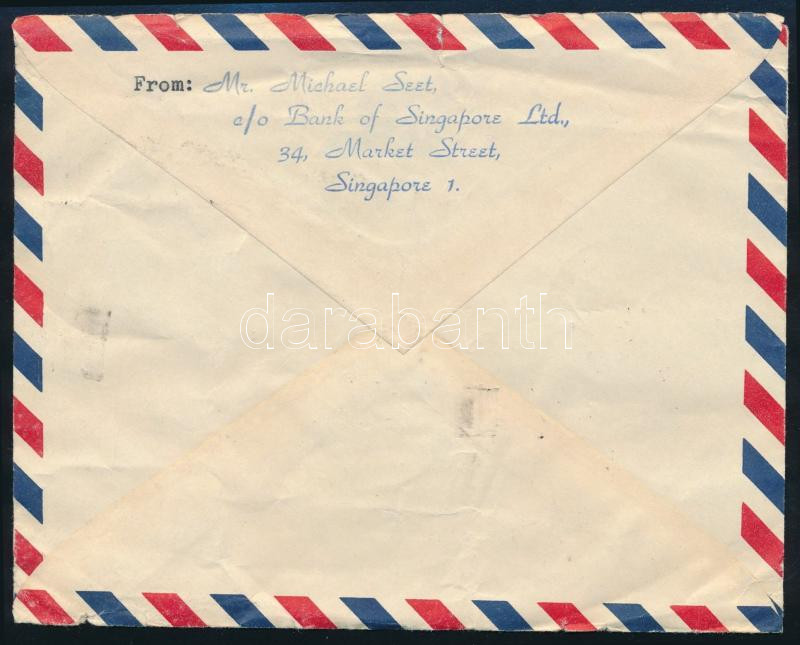 From: Mr. Michael Seet,
c/o Bank of Singapore Ltd.,
34, Market Street,
Singapore 1.
darabanth